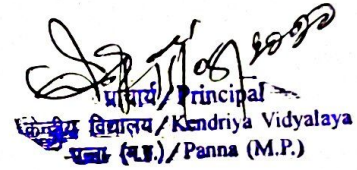 प्राचार्य / Principal
केन्द्रीय विद्यालय / Kendriya Vidyalaya
पन्ना (म.प्र.) / Panna (M.P.)